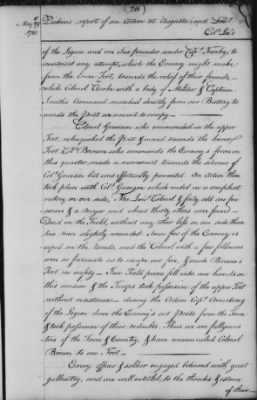 (211)
May 24th
1781
Pickens report of an Action at Augusta and Lieut.
Col. Lee's
of the Legion and one Six pounder under Capt. Finley, to
counteract any attempts, which the Enemy might make
from the lower Fort, towards the relief of their friends
while Colonel Clarke with a body of Militia & Captain
Smiths Command marched directly from our Battery to
wards the Post we meant to occupy —
Colonel Grierson who commanded in the upper
Fort, relinquished the Post & moved towards the lower
Fort Colo. Brown who commands the Enemy's force in
this quarter, made a movement towards the
of
Col. Grierson but was effectually prevented. An Action then
took place with Col. Grierson which ended in a compleat
victory on our side, The Lieut. Colonel & forty odd
& a Major and about thirty others were found
Dead on the Field, without any other loss on our side than
two men slightly wounded some few of the Enemy es
caped in the Woods, and the Colonel with a few followers
were so fortunate as to escape our fire, & reach Brown's
Fort in safety — Two Field pieces fell into our hands on
this occasion & the Troops took possession of the upper Fort
without resistance — during the Action Capt. Armstrong
of the Legion drove the Enemy's out Posts from the Town
& took possession of their redoubts. Thus we are fully
tors of the Town & Country, & have Colonel
Brown to one Fort. —
Every Officer & soldier engaged behaved with great
gallantry, and are well entitled, to the thanks & esteem
of their